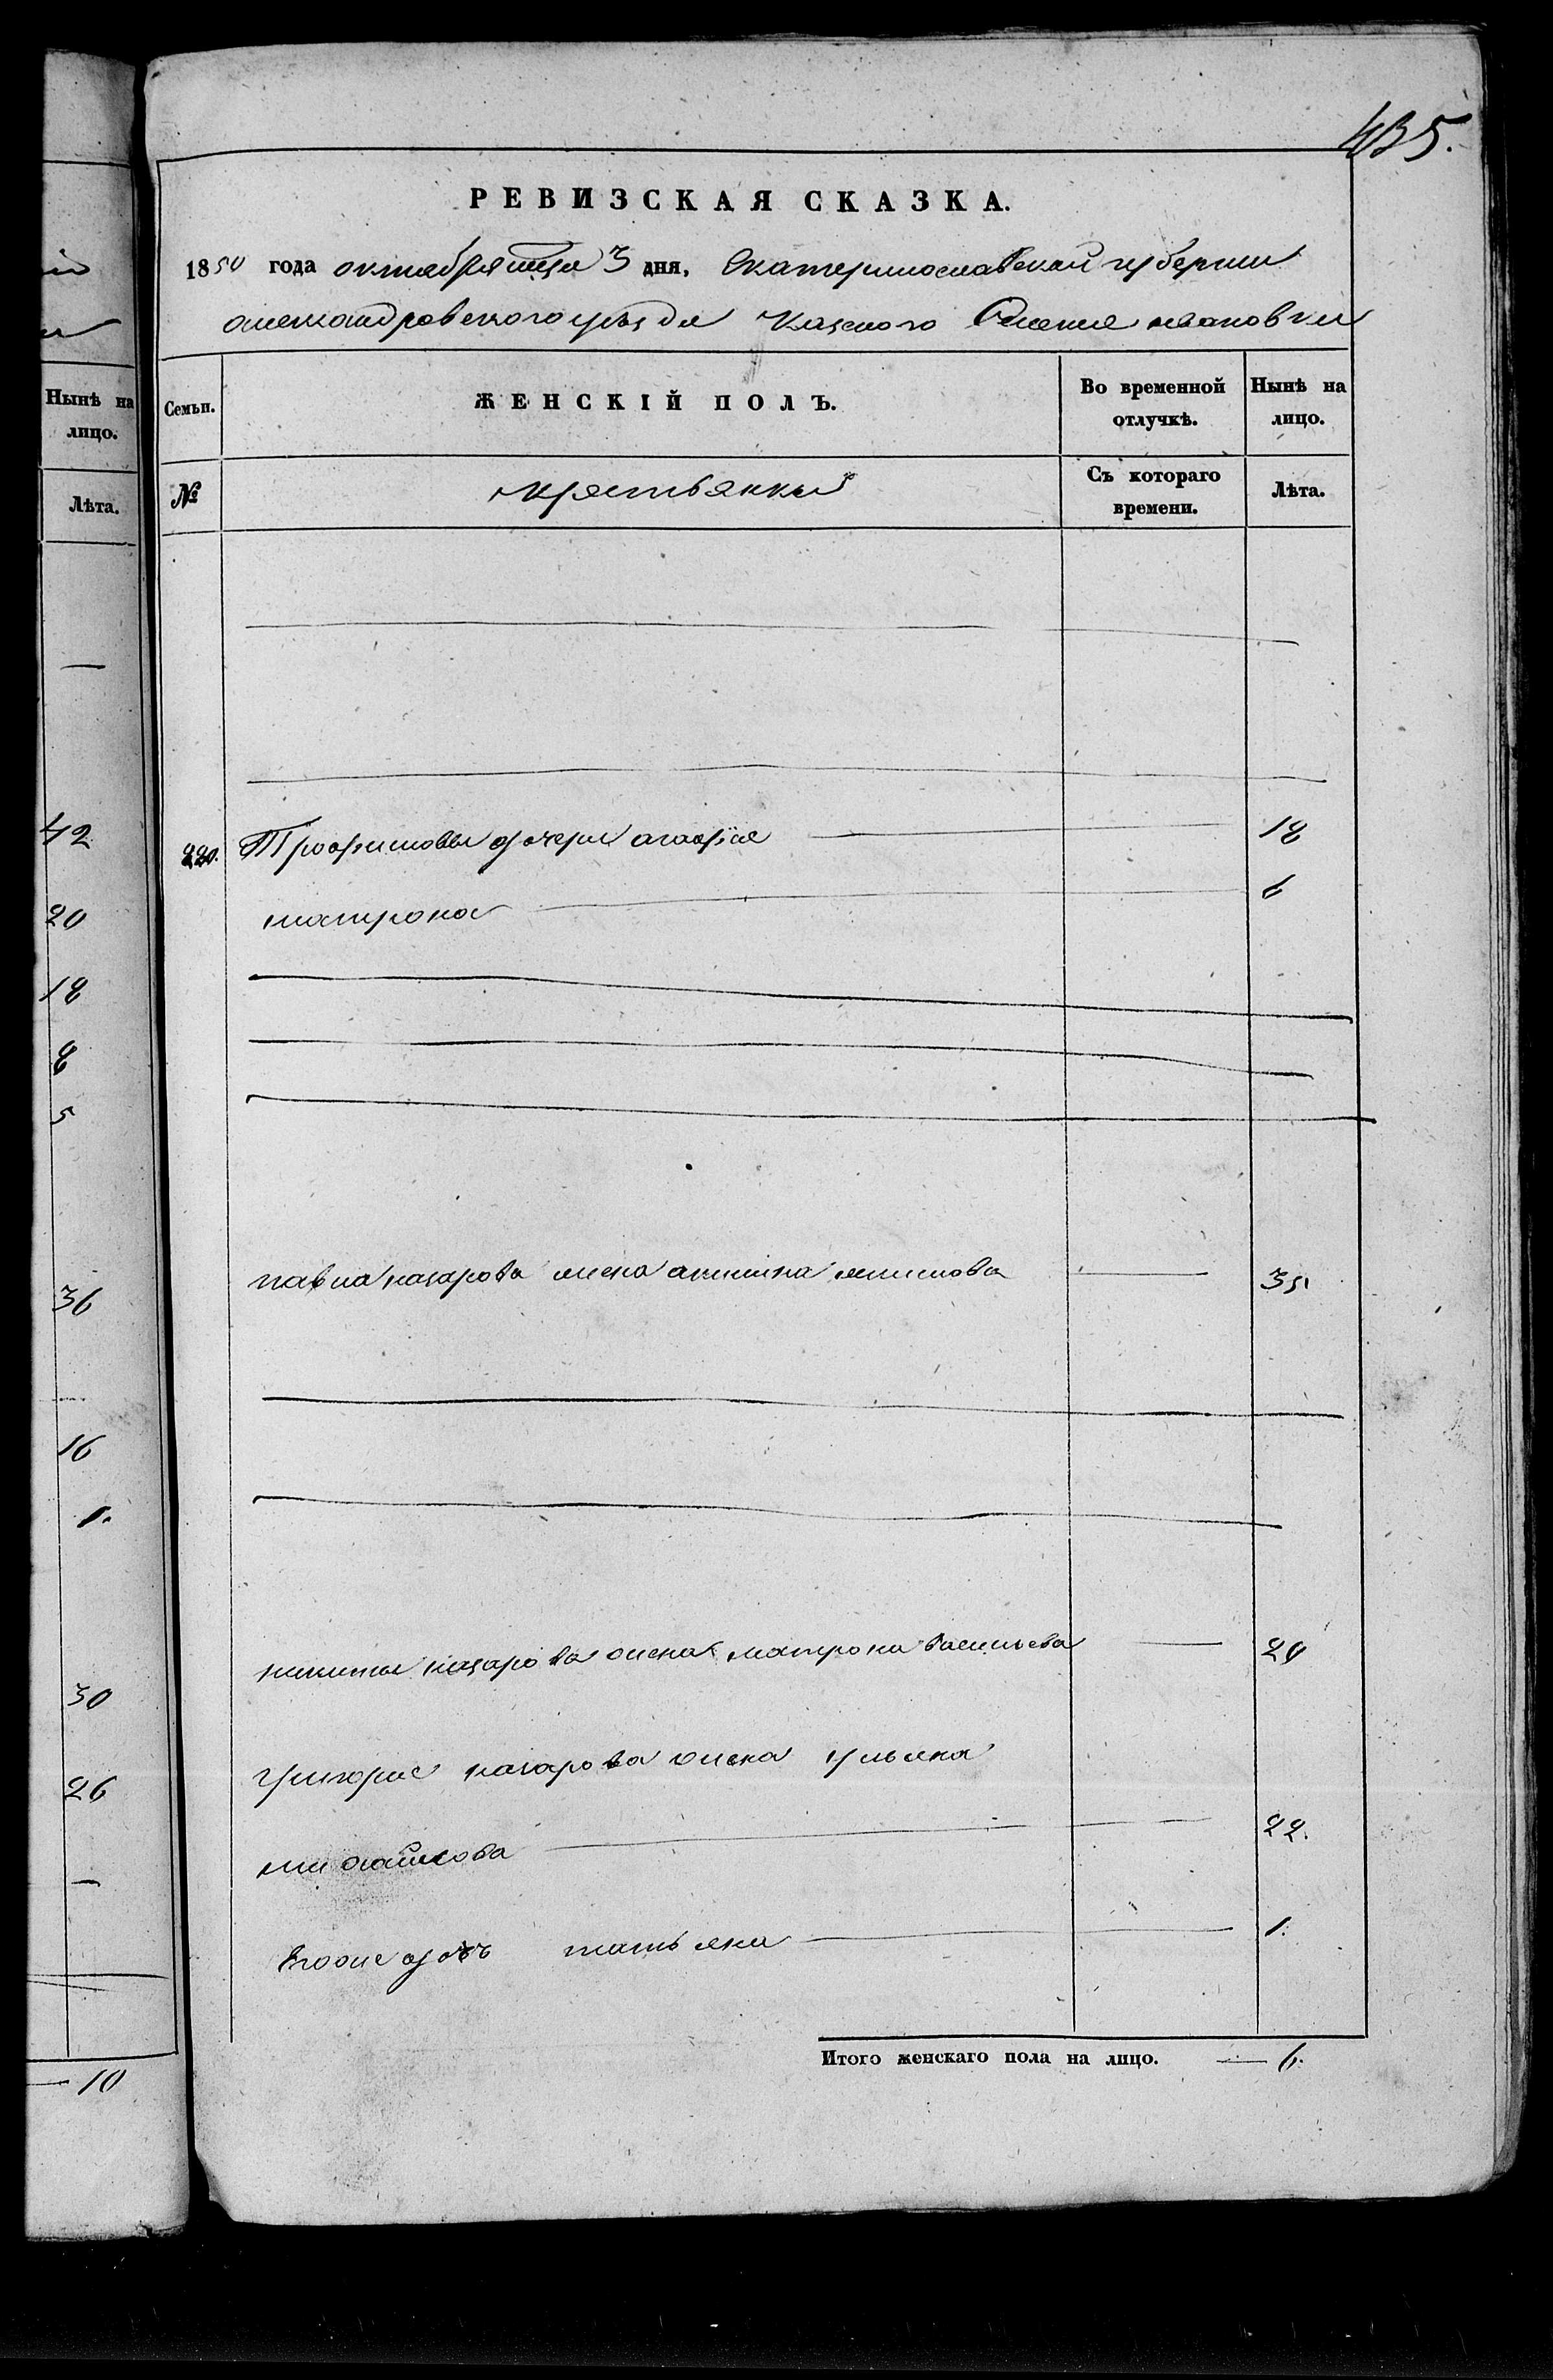 435.
РЕВИЗСКАЯ СКАЗКА.
1850 года октября мца 3 дня, Екатеринославской губернии
александровского уѣзда Казеного Селения ивановки
Нынѣ на лицо.
Лѣта.
Семьи.
ЖЕНСКІЙ ПОЛЪ.
Во временной отлучкѣ.
Нынѣ на лицо.
№
крестьянки
Съ котораго времени.
Лѣта.
42
20
18
8
5
36
16
1.
30
26
10
220. Трофимовы дочери агафія 18
матрона 6
павла назарова жена акилина 35
никиты назарова жена матрона васильева
григория назарова жена ульяна
михайлова 22.
Его дочь татьяна 1.
Итого женскаго пола на лицо. 6.